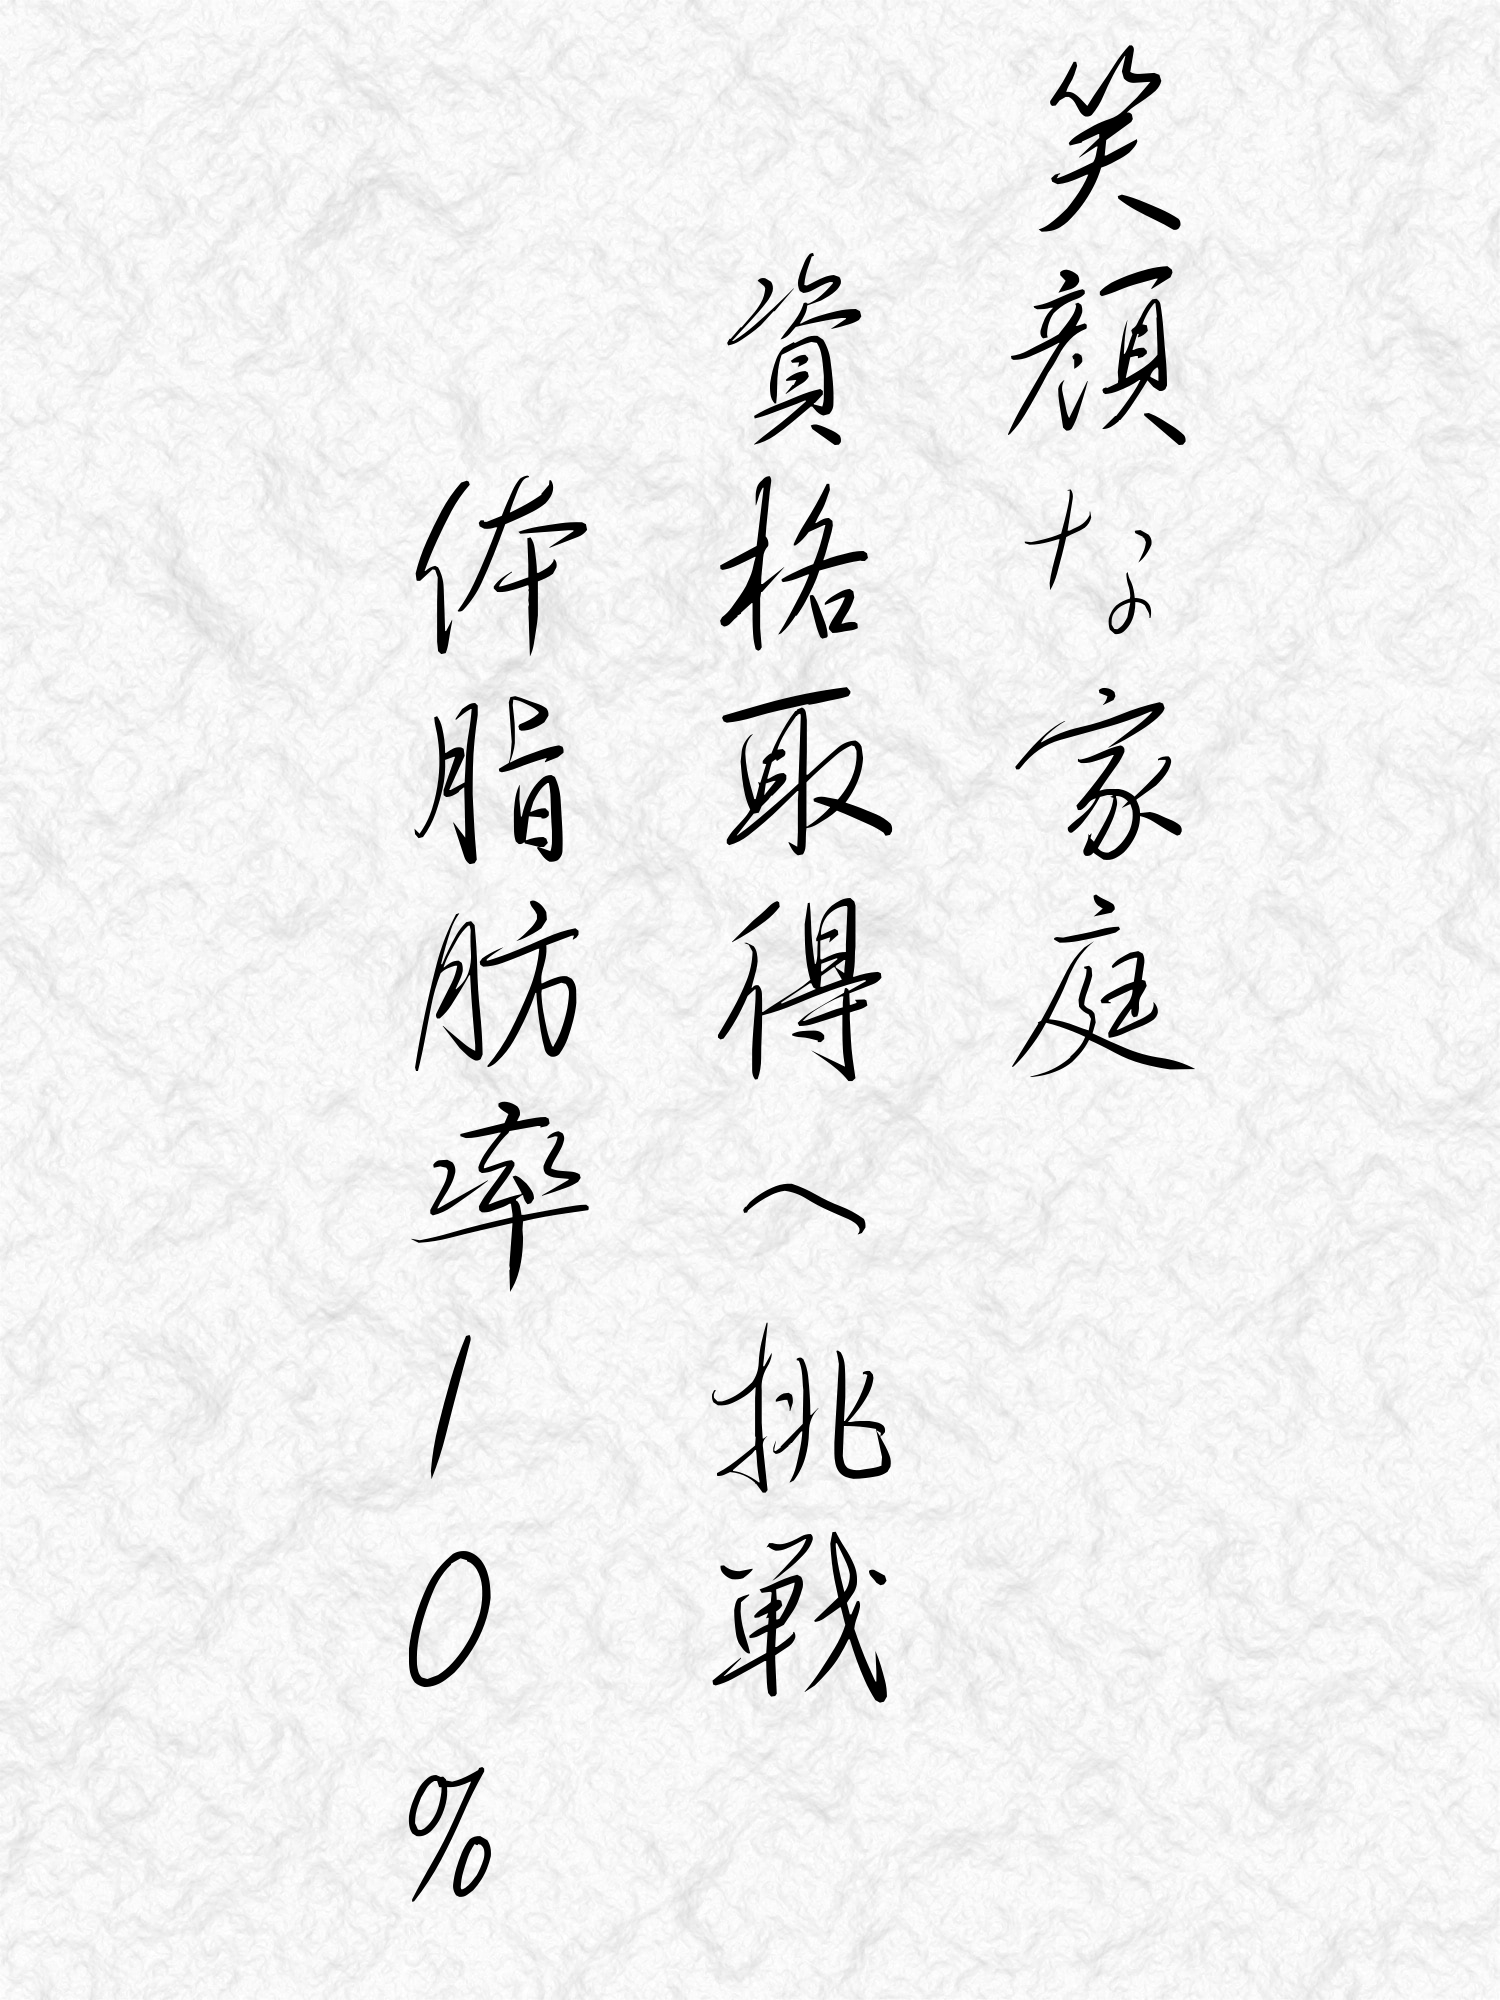 笑顔な家庭
資格取得へ挑戦
体脂肪率10%